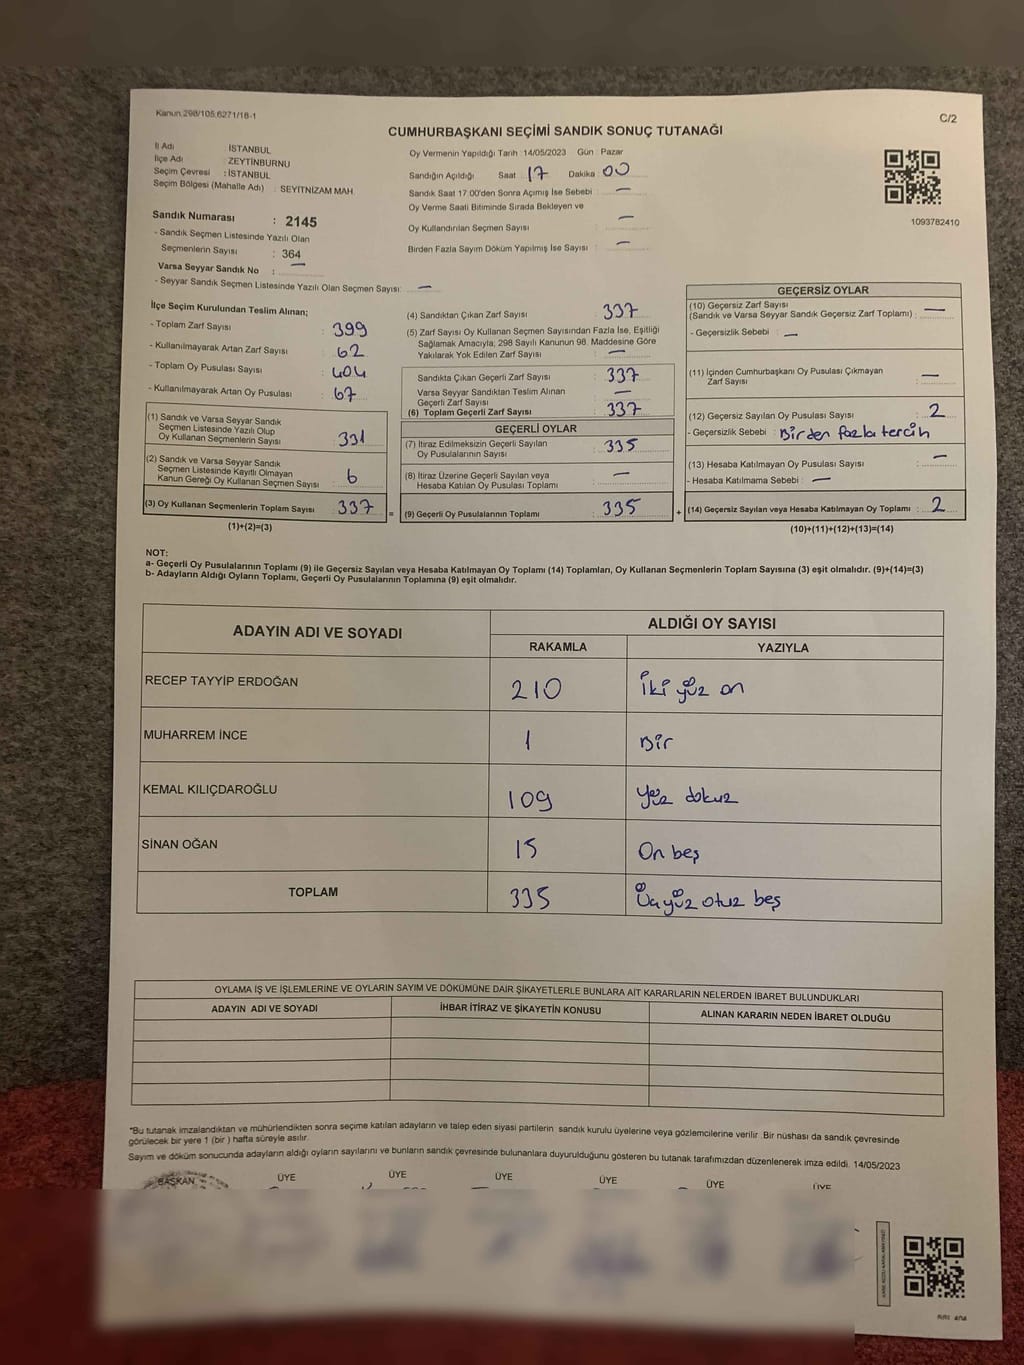 Kanun,298/105,6271/18-1
C/2
CUMHURBAŞKANI SEÇİMİ SANDIK SONUÇ TUTANAĞI
İl Adı : İSTANBUL
İlçe Adı : ZEYTİNBURNU
Seçim Çevresi : İSTANBUL
Seçim Bölgesi (Mahalle Adı) : SEYİTNİZAM MAH.
Sandık Numarası : 2145
- Sandık Seçmen Listesinde Yazılı Olan
Seçmenlerin Sayısı : 364
Varsa Seyyar Sandık No : —
- Seyyar Sandık Seçmen Listesinde Yazılı Olan Seçmen Sayısı: —
Oy Vermenin Yapıldığı Tarih :14/05/2023 Gün : Pazar
Sandığın Açıldığı Saat : 17 Dakika : 00
Sandık Saat 17.00'den Sonra Açımış İse Sebebi : —
Oy Verme Saati Bitiminde Sırada Bekleyen ve
Oy Kullandırılan Seçmen Sayısı : —
Birden Fazla Sayım Döküm Yapılmış İse Sayısı : —
1093782410
İlçe Seçim Kurulundan Teslim Alınan;
- Toplam Zarf Sayısı : 399
- Kullanılmayarak Artan Zarf Sayısı : 62
- Toplam Oy Pusulası Sayısı : 404
- Kullanılmayarak Artan Oy Pusulası : 67
(1) Sandık ve Varsa Seyyar Sandık
Seçmen Listesinde Yazılı Olup
Oy Kullanan Seçmenlerin Sayısı : 331
(2) Sandık ve Varsa Seyyar Sandık
Seçmen Listesinde Kayıtlı Olmayan
Kanun Gereği Oy Kullanan Seçmen Sayısı : 6
(3) Oy Kullanan Seçmenlerin Toplam Sayısı : 337
(1)+(2)=(3)
(4) Sandıktan Çıkan Zarf Sayısı : 337
(5) Zarf Sayısı Oy Kullanan Seçmen Sayısından Fazla İse, Eşitliği
Sağlamak Amacıyla, 298 Sayılı Kanunun 98. Maddesine Göre
Yakılarak Yok Edilen Zarf Sayısı : —
Sandıkta Çıkan Geçerli Zarf Sayısı : 337
Varsa Seyyar Sandıktan Teslim Alınan
Geçerli Zarf Sayısı : —
(6) Toplam Geçerli Zarf Sayısı : 337
GEÇERLİ OYLAR
(7) İtiraz Edilmeksizin Geçerli Sayılan
Oy Pusulalarının Sayısı : 335
(8) İtiraz Üzerine Geçerli Sayılan veya
Hesaba Katılan Oy Pusulası Toplamı : —
(9) Geçerli Oy Pusulalarının Toplamı : 335
GEÇERSİZ OYLAR
(10) Geçersiz Zarf Sayısı
(Sandık ve Varsa Seyyar Sandık Geçersiz Zarf Toplamı) : —
- Geçersizlik Sebebi : —
(11) İçinden Cumhurbaşkanı Oy Pusulası Çıkmayan
Zarf Sayısı : —
(12) Geçersiz Sayılan Oy Pusulası Sayısı : 2
- Geçersizlik Sebebi : Birden fazla tercih
(13) Hesaba Katılmayan Oy Pusulası Sayısı : —
- Hesaba Katılmama Sebebi : —
(14) Geçersiz Sayılan veya Hesaba Katılmayan Oy Toplamı : 2
(10)+(11)+(12)+(13)=(14)
NOT:
a- Geçerli Oy Pusulalarının Toplamı (9) ile Geçersiz Sayılan veya Hesaba Katılmayan Oy Toplamı (14) Toplamları, Oy Kullanan Seçmenlerin Toplam Sayısına (3) eşit olmalıdır. (9)+(14)=(3)
b- Adayların Aldığı Oyların Toplamı, Geçerli Oy Pusulalarının Toplamına (9) eşit olmalıdır.
ADAYIN ADI VE SOYADI ALDIĞI OY SAYISI
RAKAMLA YAZIYLA
RECEP TAYYİP ERDOĞAN 210 İki yüz on
MUHARREM İNCE 1 Bir
KEMAL KILIÇDAROĞLU 109 Yüz dokuz
SİNAN OĞAN 15 On beş
TOPLAM 335 Üçyüz otuz beş
OYLAMA İŞ VE İŞLEMLERİNE VE OYLARIN SAYIM VE DÖKÜMÜNE DAİR ŞİKAYETLERLE BUNLARA AİT KARARLARIN NELERDEN İBARET BULUNDUKLARI
ADAYIN ADI VE SOYADI İHBAR İTİRAZ VE ŞİKAYETİN KONUSU ALINAN KARARIN NEDEN İBARET OLDUĞU
*Bu tutanak imzalandıktan ve mühürlendikten sonra seçime katılan adayların ve talep eden siyasi partilerin sandık kurulu üyelerine veya gözlemcilerine verilir .Bir nüshası da sandık çevresinde
görülecek bir yere 1 (bir ) hafta süreyle asılır.
Sayım ve döküm sonucunda adayların aldığı oyların sayılarını ve bunların sandık çevresinde bulunanlara duyurulduğunu gösteren bu tutanak tarafımızdan düzenlenerek imza edildi. 14/05/2023
BAŞKAN ÜYE ÜYE ÜYE ÜYE ÜYE ÜYE